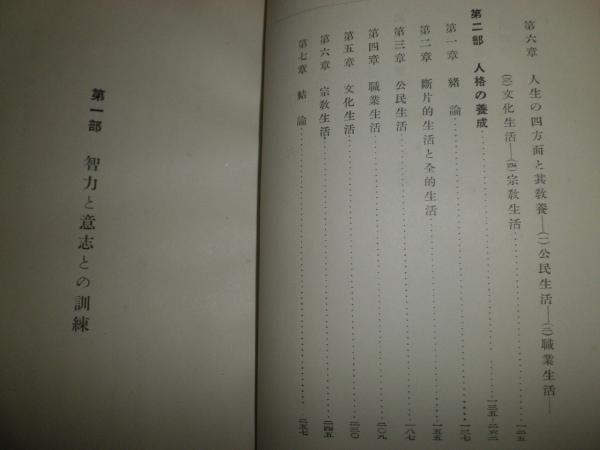 第六章 人生の四方面と其敎養――(一)公民生活――(二)職業生活――
(三)文化生活――(四)宗敎生活……一二五
第二部 人格の養成……一三五―二六二
第一章 緖論……一三七
第二章 斷片的生活と全的生活……一五五
第三章 公民生活……一八七
第四章 職業生活……二〇九
第五章 文化生活……二三〇
第六章 宗敎生活……二四五
第七章 結論……二五七
第一部 智力と意志との訓練